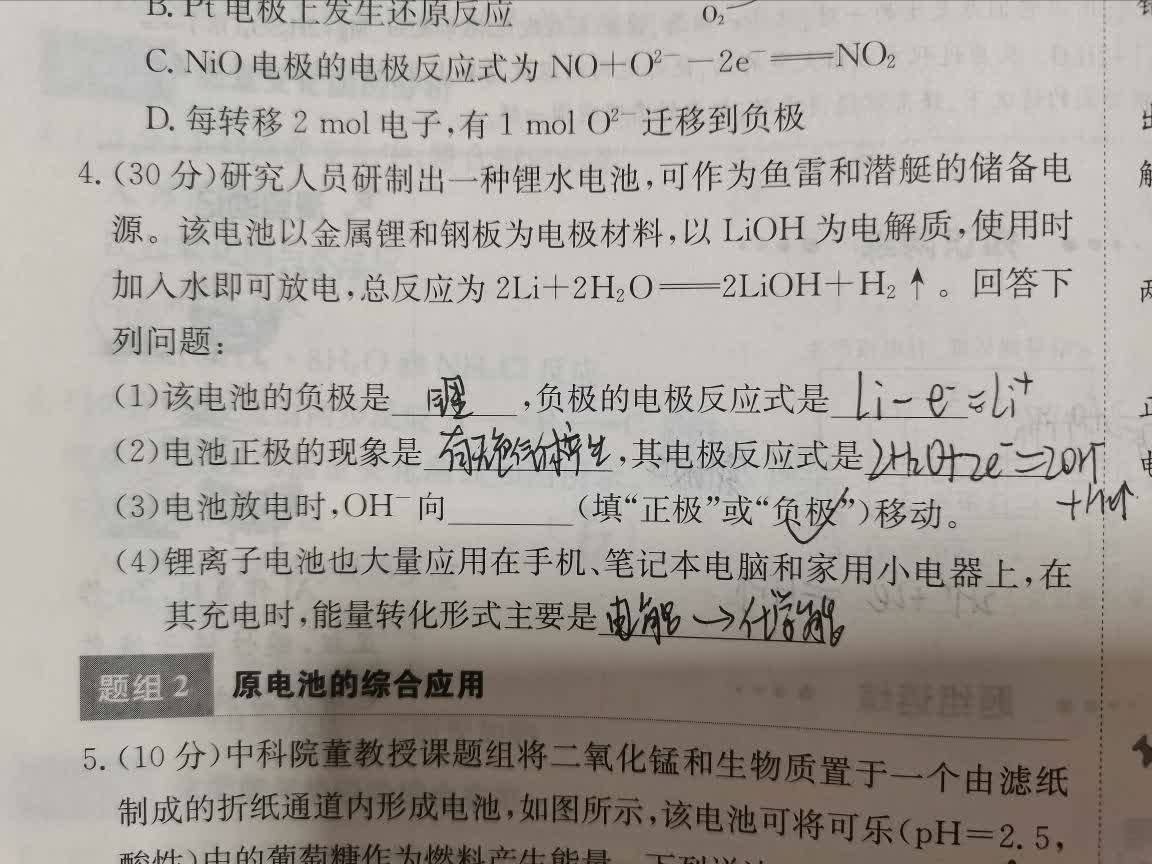 B. Pt电极上发生还原反应
O₂
C. NiO电极的电极反应式为NO+O²⁻—2e⁻══NO₂
D. 每转移2 mol电子,有1 mol O²⁻迁移到负极
4. (30分)研究人员研制出一种锂水电池,可作为鱼雷和潜艇的储备电
源。该电池以金属锂和钢板为电极材料,以LiOH为电解质,使用时
加入水即可放电,总反应为2Li+2H₂O══2LiOH+H₂↑。回答下
列问题:
(1)该电池的负极是 锂 ,负极的电极反应式是 Li-e⁻=Li⁺
(2)电池正极的现象是 有无色气体产生 ,其电极反应式是 2H₂O+2e⁻=2OH⁻
+H₂↑
(3)电池放电时,OH⁻向______(填“正极”或“负极”)移动。
(4)锂离子电池也大量应用在手机、笔记本电脑和家用小电器上,在
其充电时,能量转化形式主要是 电能→化学能
题组2 原电池的综合应用
5. (10分)中科院董教授课题组将二氧化锰和生物质置于一个由滤纸
制成的折纸通道内形成电池,如图所示,该电池可将可乐(pH=2.5,
酸性)中的葡萄糖作为燃料产生能量。下列说法